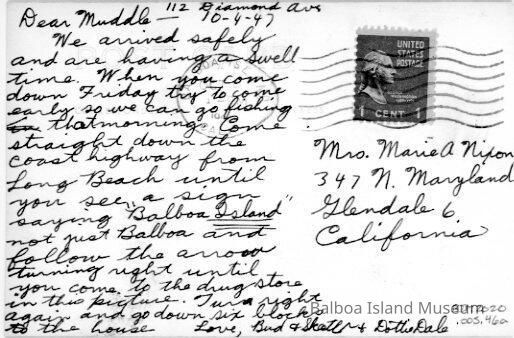 112 Diamond Ave
Dear Muddle — 10-4-47
We arrived safely
and are having a swell
time. When you come
down Friday try to come
early so we can go fishing
that morning. Come
straight down the
coast highway from
Long Beach until
you see a sign
saying "Balboa Island"
not just Balboa and
follow the arrow
turning right until
you come to the drug store
in this picture. Turn right
again and go down six blocks
to the house Love, Bud & & Dottie Dale
UNITED
STATES
POSTAGE
1 CENT
Mrs. Marie A Nixon
347 N. Maryland
Glendale 6,
California
Balboa Island Museum